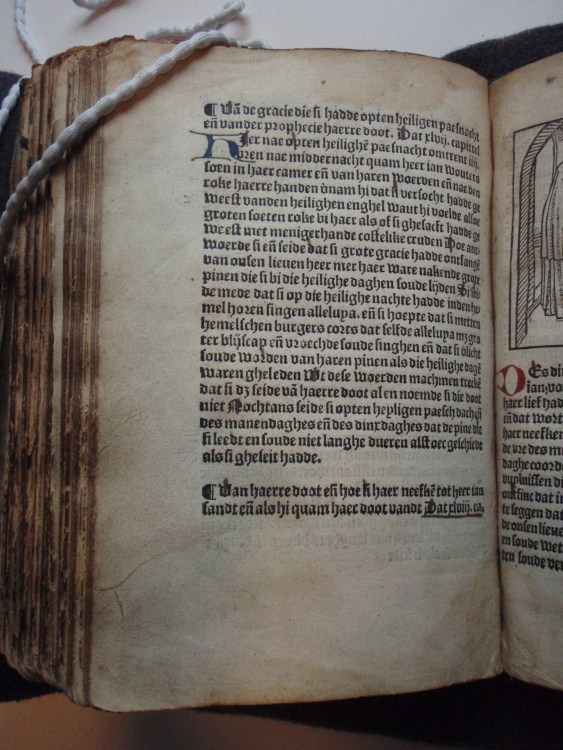 ¶ Uā de gracie die si hadde opten heiligen paesnacht
eñ vander prophecie haerre doot. Dat xlvij. capittel
HIer nae opten heilighē paesnacht omtrent iiij.
uren nae middernacht quam heer ian wouters
soen in haer camer eñ van haren woerden eñ na den
roke haerre handen vnam hi dat si versocht hadde ge
weest vanden heilighen enghel want hi voelde alsoe
groten soeten roke bi haer als of si ghesalft hadde ge
weest met menigerhande costelike cruden Doe ant
woerde si eñ seide dat si grote gracie hadde ontfangē
van onsen lieuen heer mer haer ware nakende grote
pinen die si bi die heilighe daghen soude lijden Si sei
de mede dat si op die heilighe nachte hadde inden he
mel horen singen alleluya. eñ si hoepte dat si metten
hemelschen burgers corts dat selfde alleluya mz gro
ter blijscap eñ vroechde soude singhen eñ dat si v̄licht
soude worden van haren pinen als die heilighe dagē
waren gheleden Wt dese woerden machmen mercken
dat si dz seide vā haerre doot al en noemde si die doot
niet Nochtans seide si opten heyligen paeschdach eñ
des manendaghes eñ des dinxdaghes dat de pine die
si leedt en soude niet langhe dueren alst oec geschiede
als si gheseit hadde.
¶ Van haerre doot eñ hoe si haer neefkē tot heer ian
sandt eñ als hi quam haer doot vandt Dat xlviij. ca.
DOes di
ian wo
haer lief had
eñ dat wort
haer neefken
de vre des m
daghe coorde
te seggen dat
de onsen lieue
en soude wet
ten soude ver